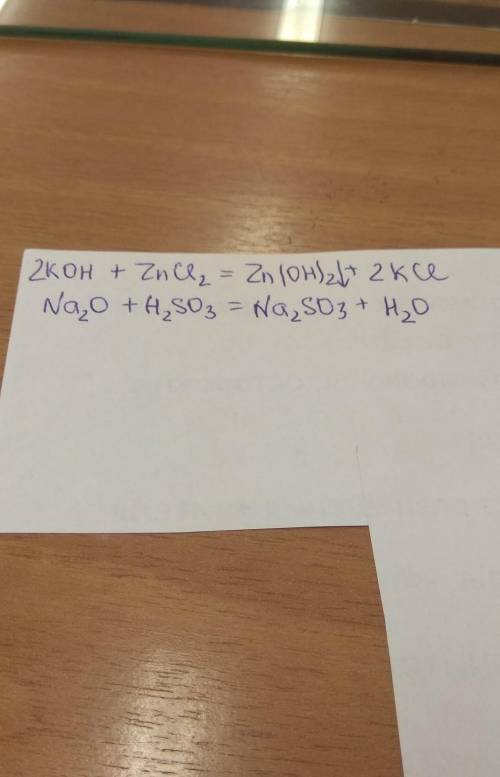 2KOH + ZnCl₂ = Zn(OH)₂↓ + 2KCl
Na₂O + H₂SO₃ = Na₂SO₃ + H₂O